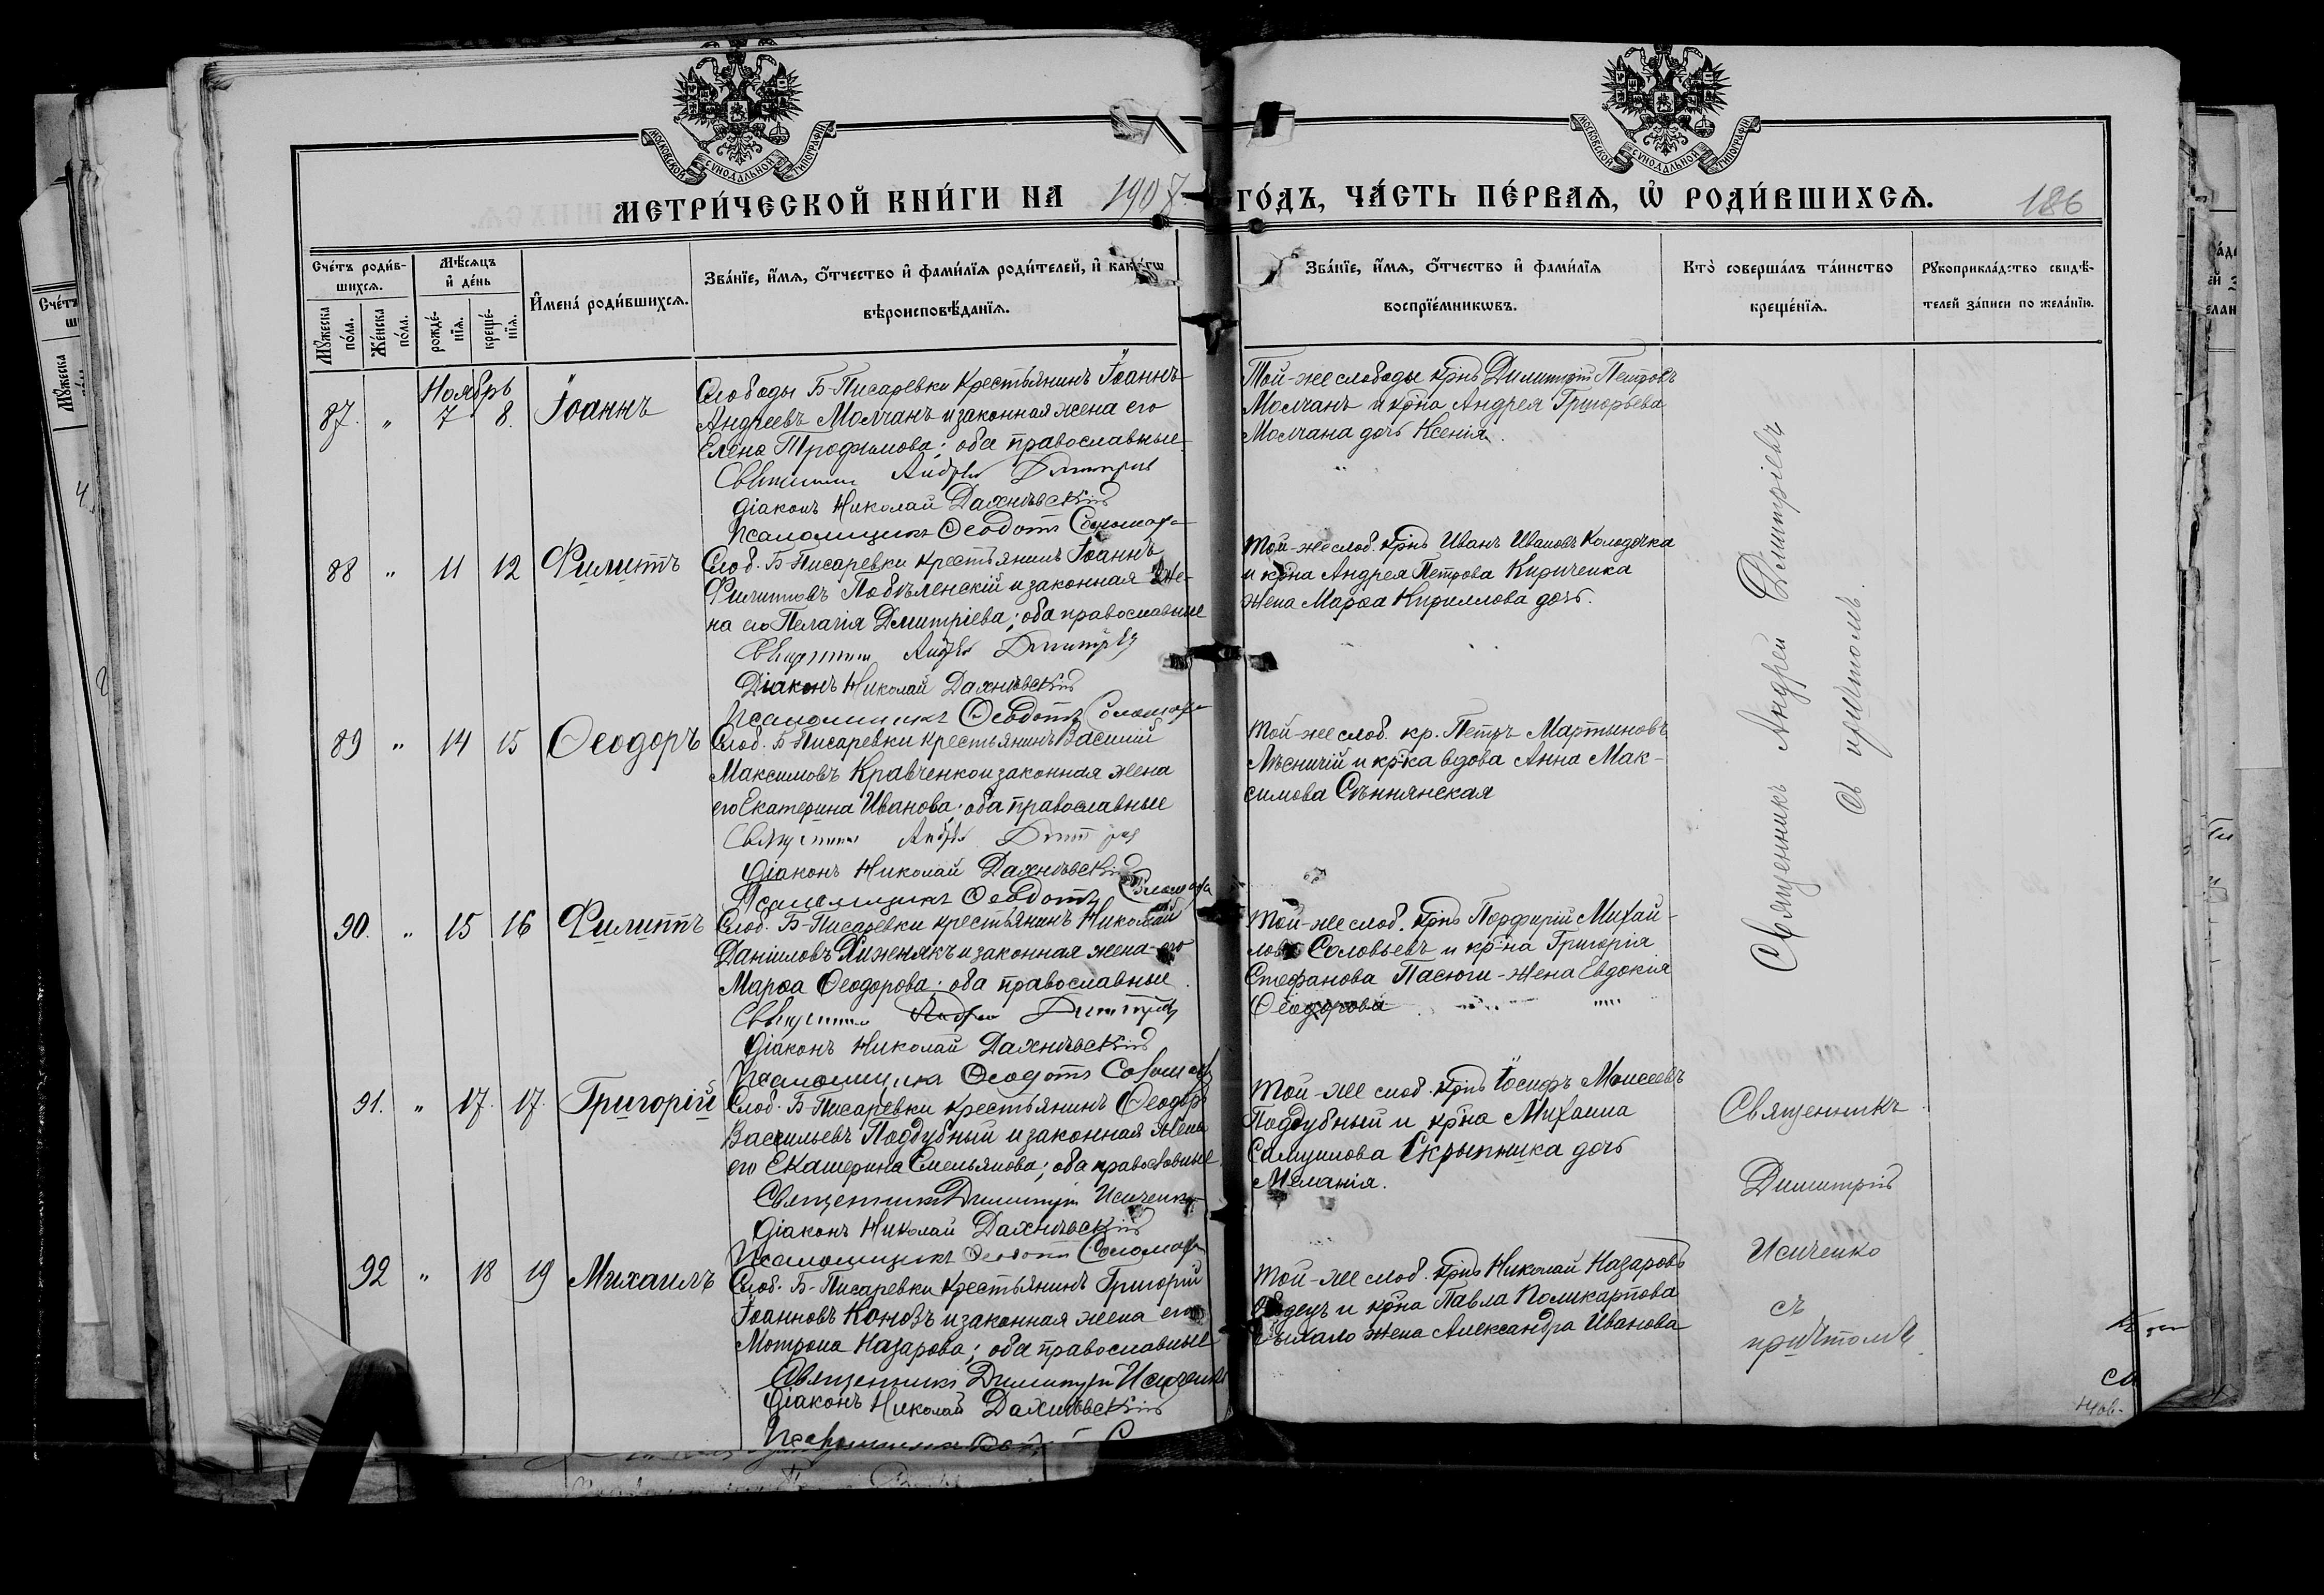 МОСКОВСКОЙ СѴНОДАЛЬНОЙ ТИПОГРАФІИ
МОСКОВСКОЙ СѴНОДАЛЬНОЙ ТИПОГРАФІИ
МЕТРИ́ЧЕСКОЙ КНИ́ГИ НА 1907 ГО́ДЪ, ЧА́СТЬ ПЕ́РВАѦ, Ѡ҆ РОДИ́ВШИХСѦ.
186
Сче́тъ роди́в-
шихсѧ.
Мꙋ́жеска по́ла.
Же́нска по́ла.
Мѣ́сѧцъ и҆ де́нь
рожде́-нїѧ.
креще́-нїѧ.
И҆мена́ роди́вшихсѧ.
Зва́нїе, и҆́мѧ, о҆́тчество и҆ фами́лїѧ роди́телей, и҆ како́гѡ
вѣроисповѣ́данїѧ.
Зва́нїе, и҆́мѧ, о҆́тчество и҆ фами́лїѧ
воспрїе́мникѡвъ.
Кто̀ соверша́лъ та́инство
креще́нїѧ.
Рꙋкоприкла́дство свидѣ́-
телей за́писи по жела́нїю.
Ноябрь
87. " 7 8. Іоаннъ
Слободы Б-Писаревки Крестьянинъ Іоаннъ
Андреевъ Молчанъ и законная жена его
Елена Трофимова; оба православные
Андрей Дмитріев
Діаконъ Николай Дахнѣвскій
Псаломщикъ Ѳеодотъ
Той-же слободы крнъ Димитрій Петровъ
Молчанъ и кр-на Андрея Григорьева
Молчана дочь Ксенія.
88 " 11 12 Филиппъ
Слоб. Б-Писаревки Крестьянинъ Іоаннъ
Филипповъ Побѣленскій и законная же-
на его Пелагія Дмитріева; оба православные
Андрей Дмитріев
Діаконъ Николай Дахнѣвскій
Псаломщикъ Ѳеодотъ
Той-же слоб. крнъ Иванъ Ивановъ Колодочка
и кр-на Андрея Петрова Кириченка
жена Марѳа Кириллова дочь.
89 " 14 15 Ѳеодоръ
Слоб. Б-Писаревки крестьянинъ Василій
Максимовъ Кравченко и законная жена
его Екатерина Иванова; оба православные
Андрей
Діаконъ Николай Дахнѣвскій
Псаломщикъ Ѳеодотъ
Той-же слоб. кр. Петръ Мартыновъ
Лѣсничій и кр-ка вдова Анна Мак-
симова Сѣннянская
90. " 15 16 Филиппъ
Слоб. Б-Писаревки крестьянинъ Николай
Даніиловъ и законная жена его
Марѳа Ѳеодорова; оба православные
Андрей
Діаконъ Николай Дахнѣвскій
Псаломщикъ Ѳеодотъ
Той-же слоб. крнъ Порфирій Михай-
ловъ Соловьевъ и кр-на Григорія
Стефанова Пасюги - жена Евдокія
Ѳеодорова
Священникъ Андрей Дмитріевъ
съ причтомъ.
91. " 17. 17. Григорій
Слоб. Б-Писаревки крестьянинъ Ѳеодоръ
Васильевъ Поддубный и законная жена
его Екатерина Емельянова; оба православные
Священникъ Димитрій Исиченко
Діаконъ Николай Дахнѣвскій
Псаломщикъ Ѳеодотъ
Той-же слоб. крнъ Іосифъ Моисеевъ
Поддубный и кр-на Михаила
Самуилова Скрыпника дочь
Меланія.
92 " 18 19 Михаилъ
Слоб. Б-Писаревки Крестьянинъ Григорій
Іоанновъ и законная жена его
Мотрона Назарова; оба православные
Священникъ Димитрій Исиченко
Діаконъ Николай Дахнѣвскій
Той-же слоб. крнъ Николай Назаровъ
и кр-на Павла Поликарпова
жена Александра Иванова
Священникъ
Димитрій
Исиченко
съ
причтомъ.